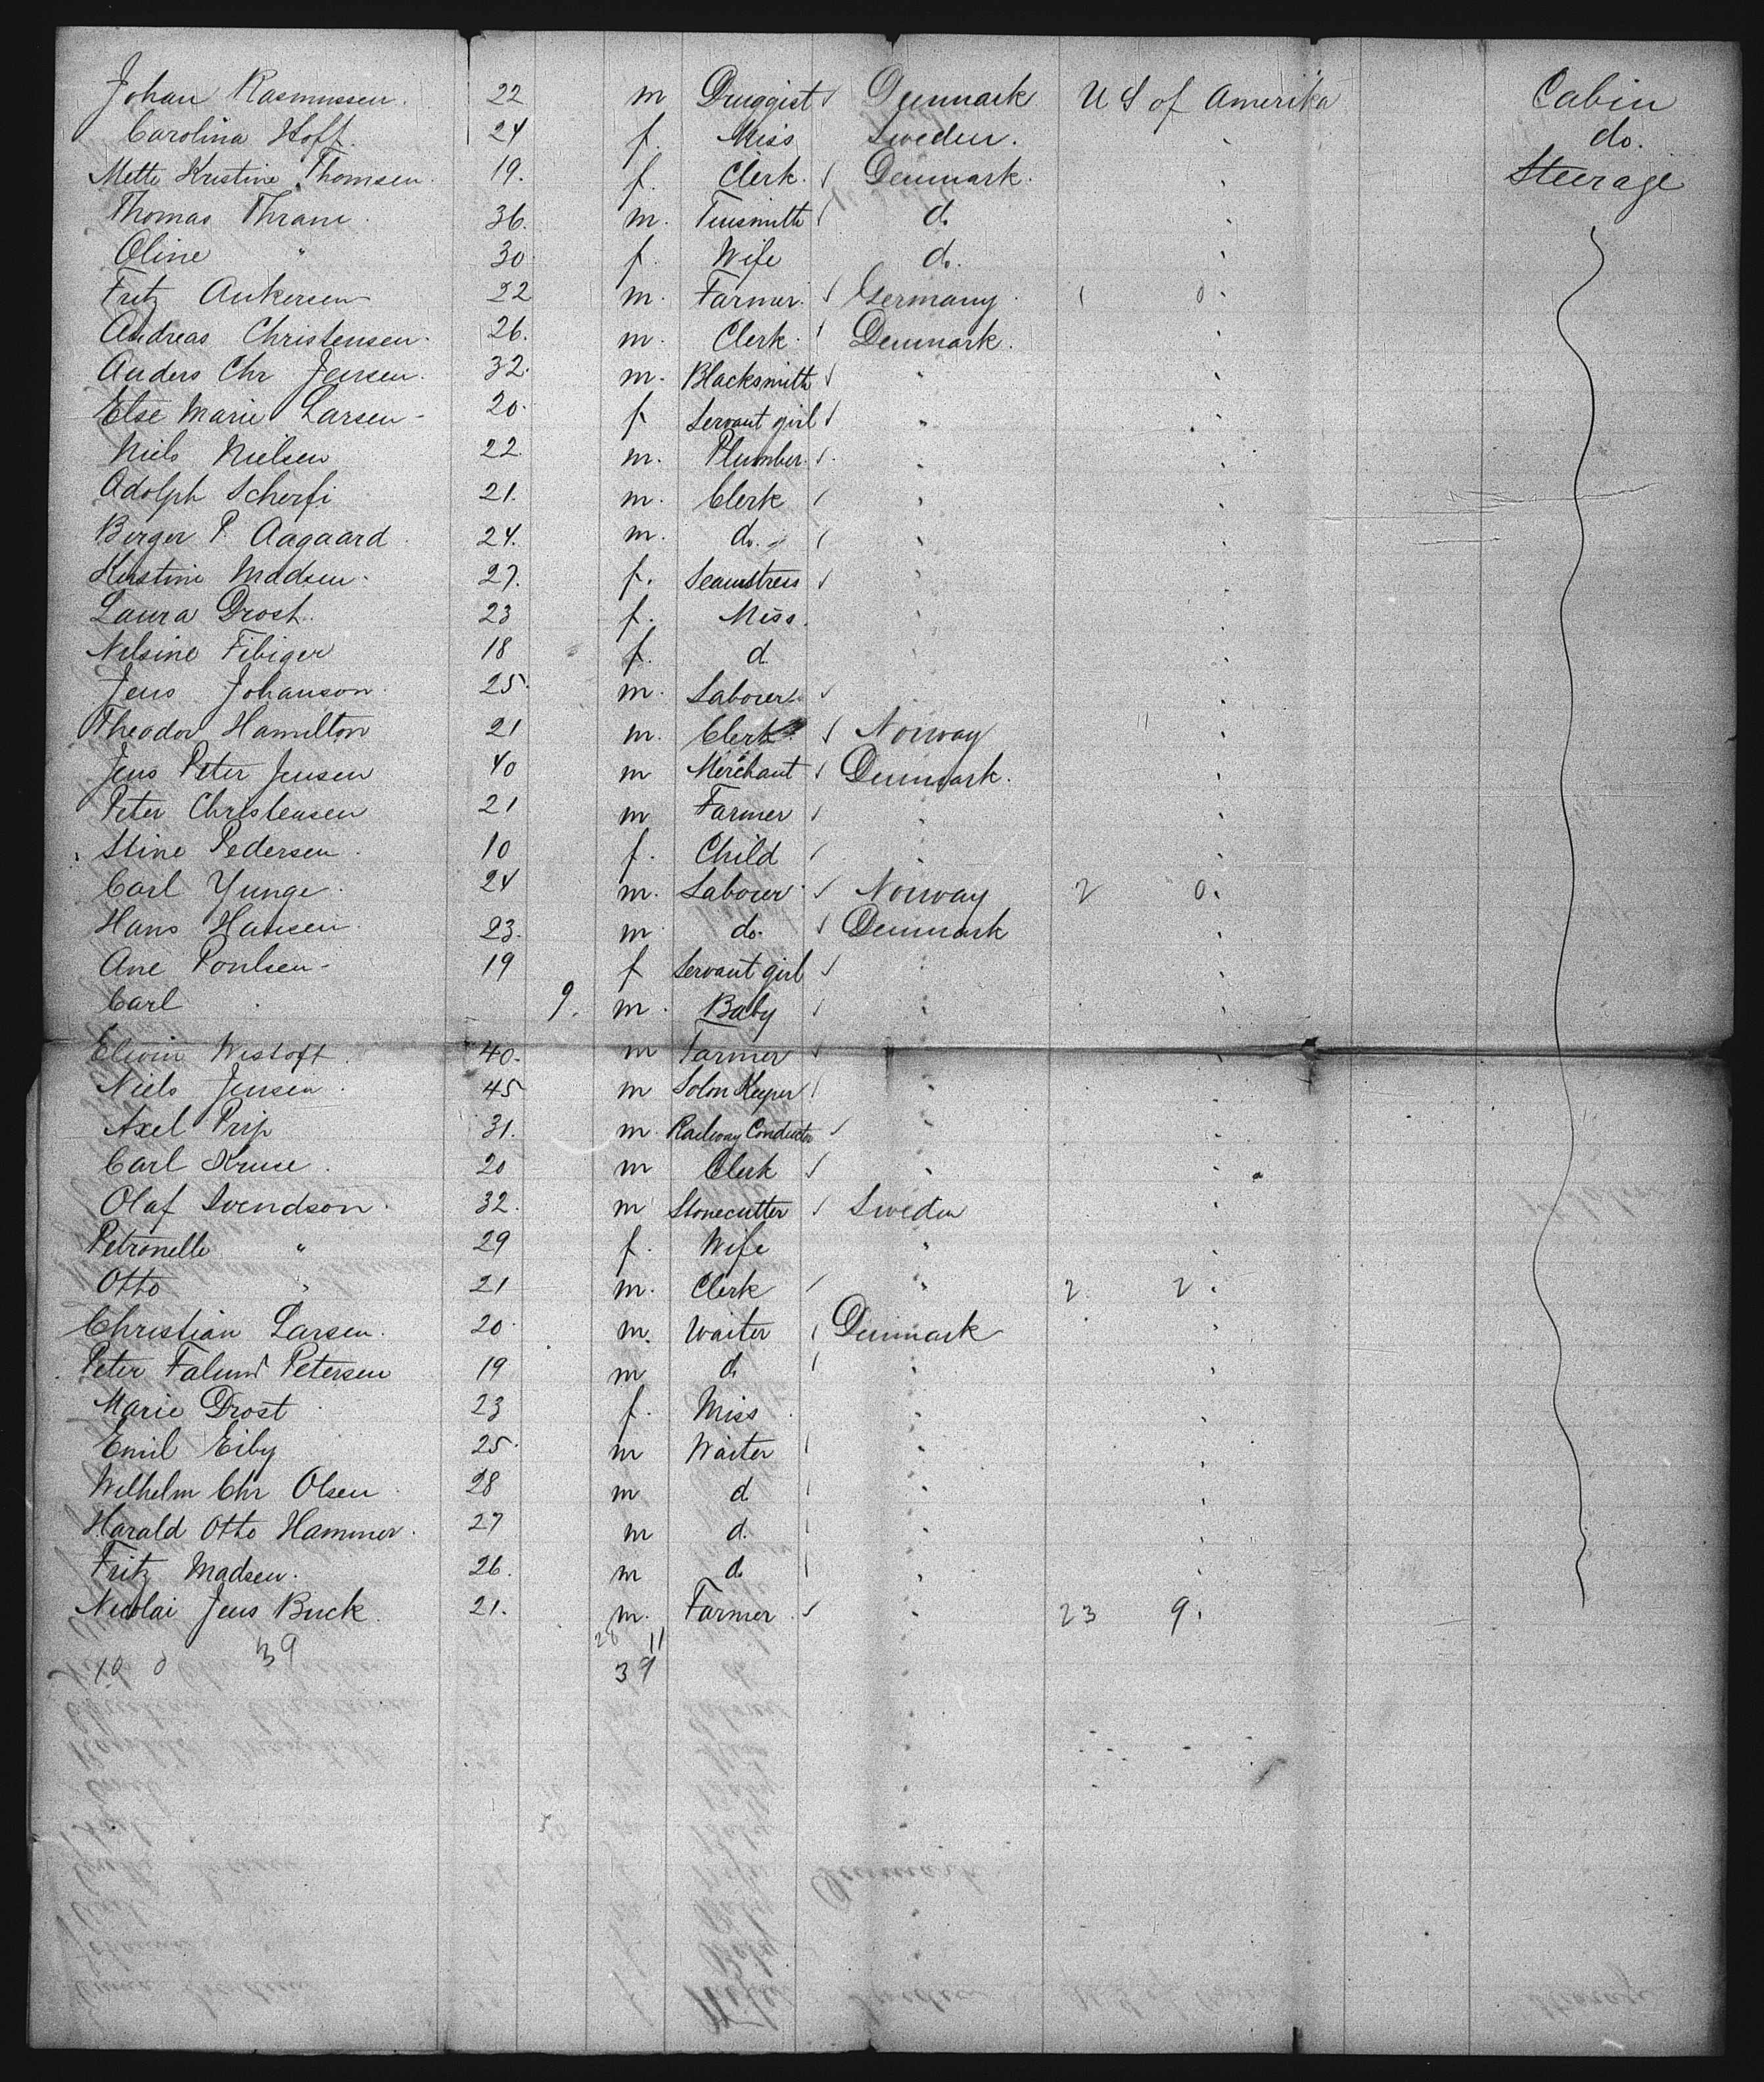 Johan Rasmussen. 22 m Druggist Denmark U S of Amerika Cabin
Carolina Hoff. 24 f. Miss Sweden. do.
Mette Kristine Thomsen. 19. f. Clerk. Denmark. Steerage
Thomas Thrane. 36. m. Tinsmith do
Oline " 30. f. Wife do.
Fritz Ankersen 22 m. Farmer. Germany. 1 0.
Andreas Christensen. 26. m. Clerk. Denmark.
Anders Chr Jensen. 32. m. Blacksmith "
Else Marie Larsen - 20. f. Servant girl "
Niels Nielsen 22. m. Plumber. "
Adolph Scherfi 21. m. Clerk "
Berger P. Aagaard 24. m. do. "
Kirstine Madsen. 27. f. Seamstress "
Laura Drost. 23 f. Miss. "
Nelsine Fibiger 18 f. d. "
Jens Johanson. 25. m. Labourer "
Theodor Hamilton 21 m. Clerk. Norway
Jens Peter Jensen 40 m Merchant Denmark.
Peter Christensen 21 m Farmer "
Stine Pedersen 10 f. Child "
Carl Yunge. 24 m. Labourer Norway 2 0.
Hans Hansen. 23. m. do. Denmark
Ane Poulsen - 19 f Servant girl "
Carl 9. m. Baby "
Elwin Wistoft. 40. m Farmer
Niels Jensen. 45 m Solon Keeper "
Axel Prip 31. m. Railway Conductor "
Carl Kruse. 20 m Clerk "
Olaf Svendson. 32. m Stonecutter Sweden
Petronelle " 29 f. Wife "
Otto " 21 m. Clerk " 2 2.
Christian Larsen. 20. m. Waiter Denmark
Peter Petersen 19 m d. "
Marie Drost 23 f. Miss "
Emil Eiby 25. m Waiter "
Wilhelm Chr Olsen 28 m d "
Harald Otto Hammer. 27 m d. "
Fritz Madsen. 26. m d "
Nicolai Jens Buck. 21. m. Farmer. " 23 9.
28 11
10 0 39 39